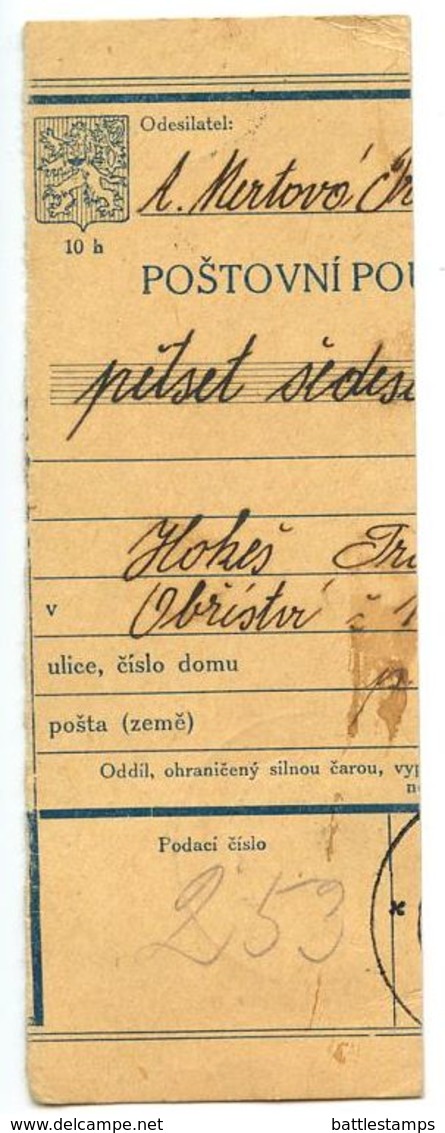 Odesilatel:
A. Mertová
10 h
POŠTOVNÍ POU
pětset šedes
Hokeš
v Obříství č 1
ulice, číslo domu
pošta (země)
Oddíl, ohraničený silnou čarou, vyp
Podací číslo
253
www.delcampe.net
battlestamps